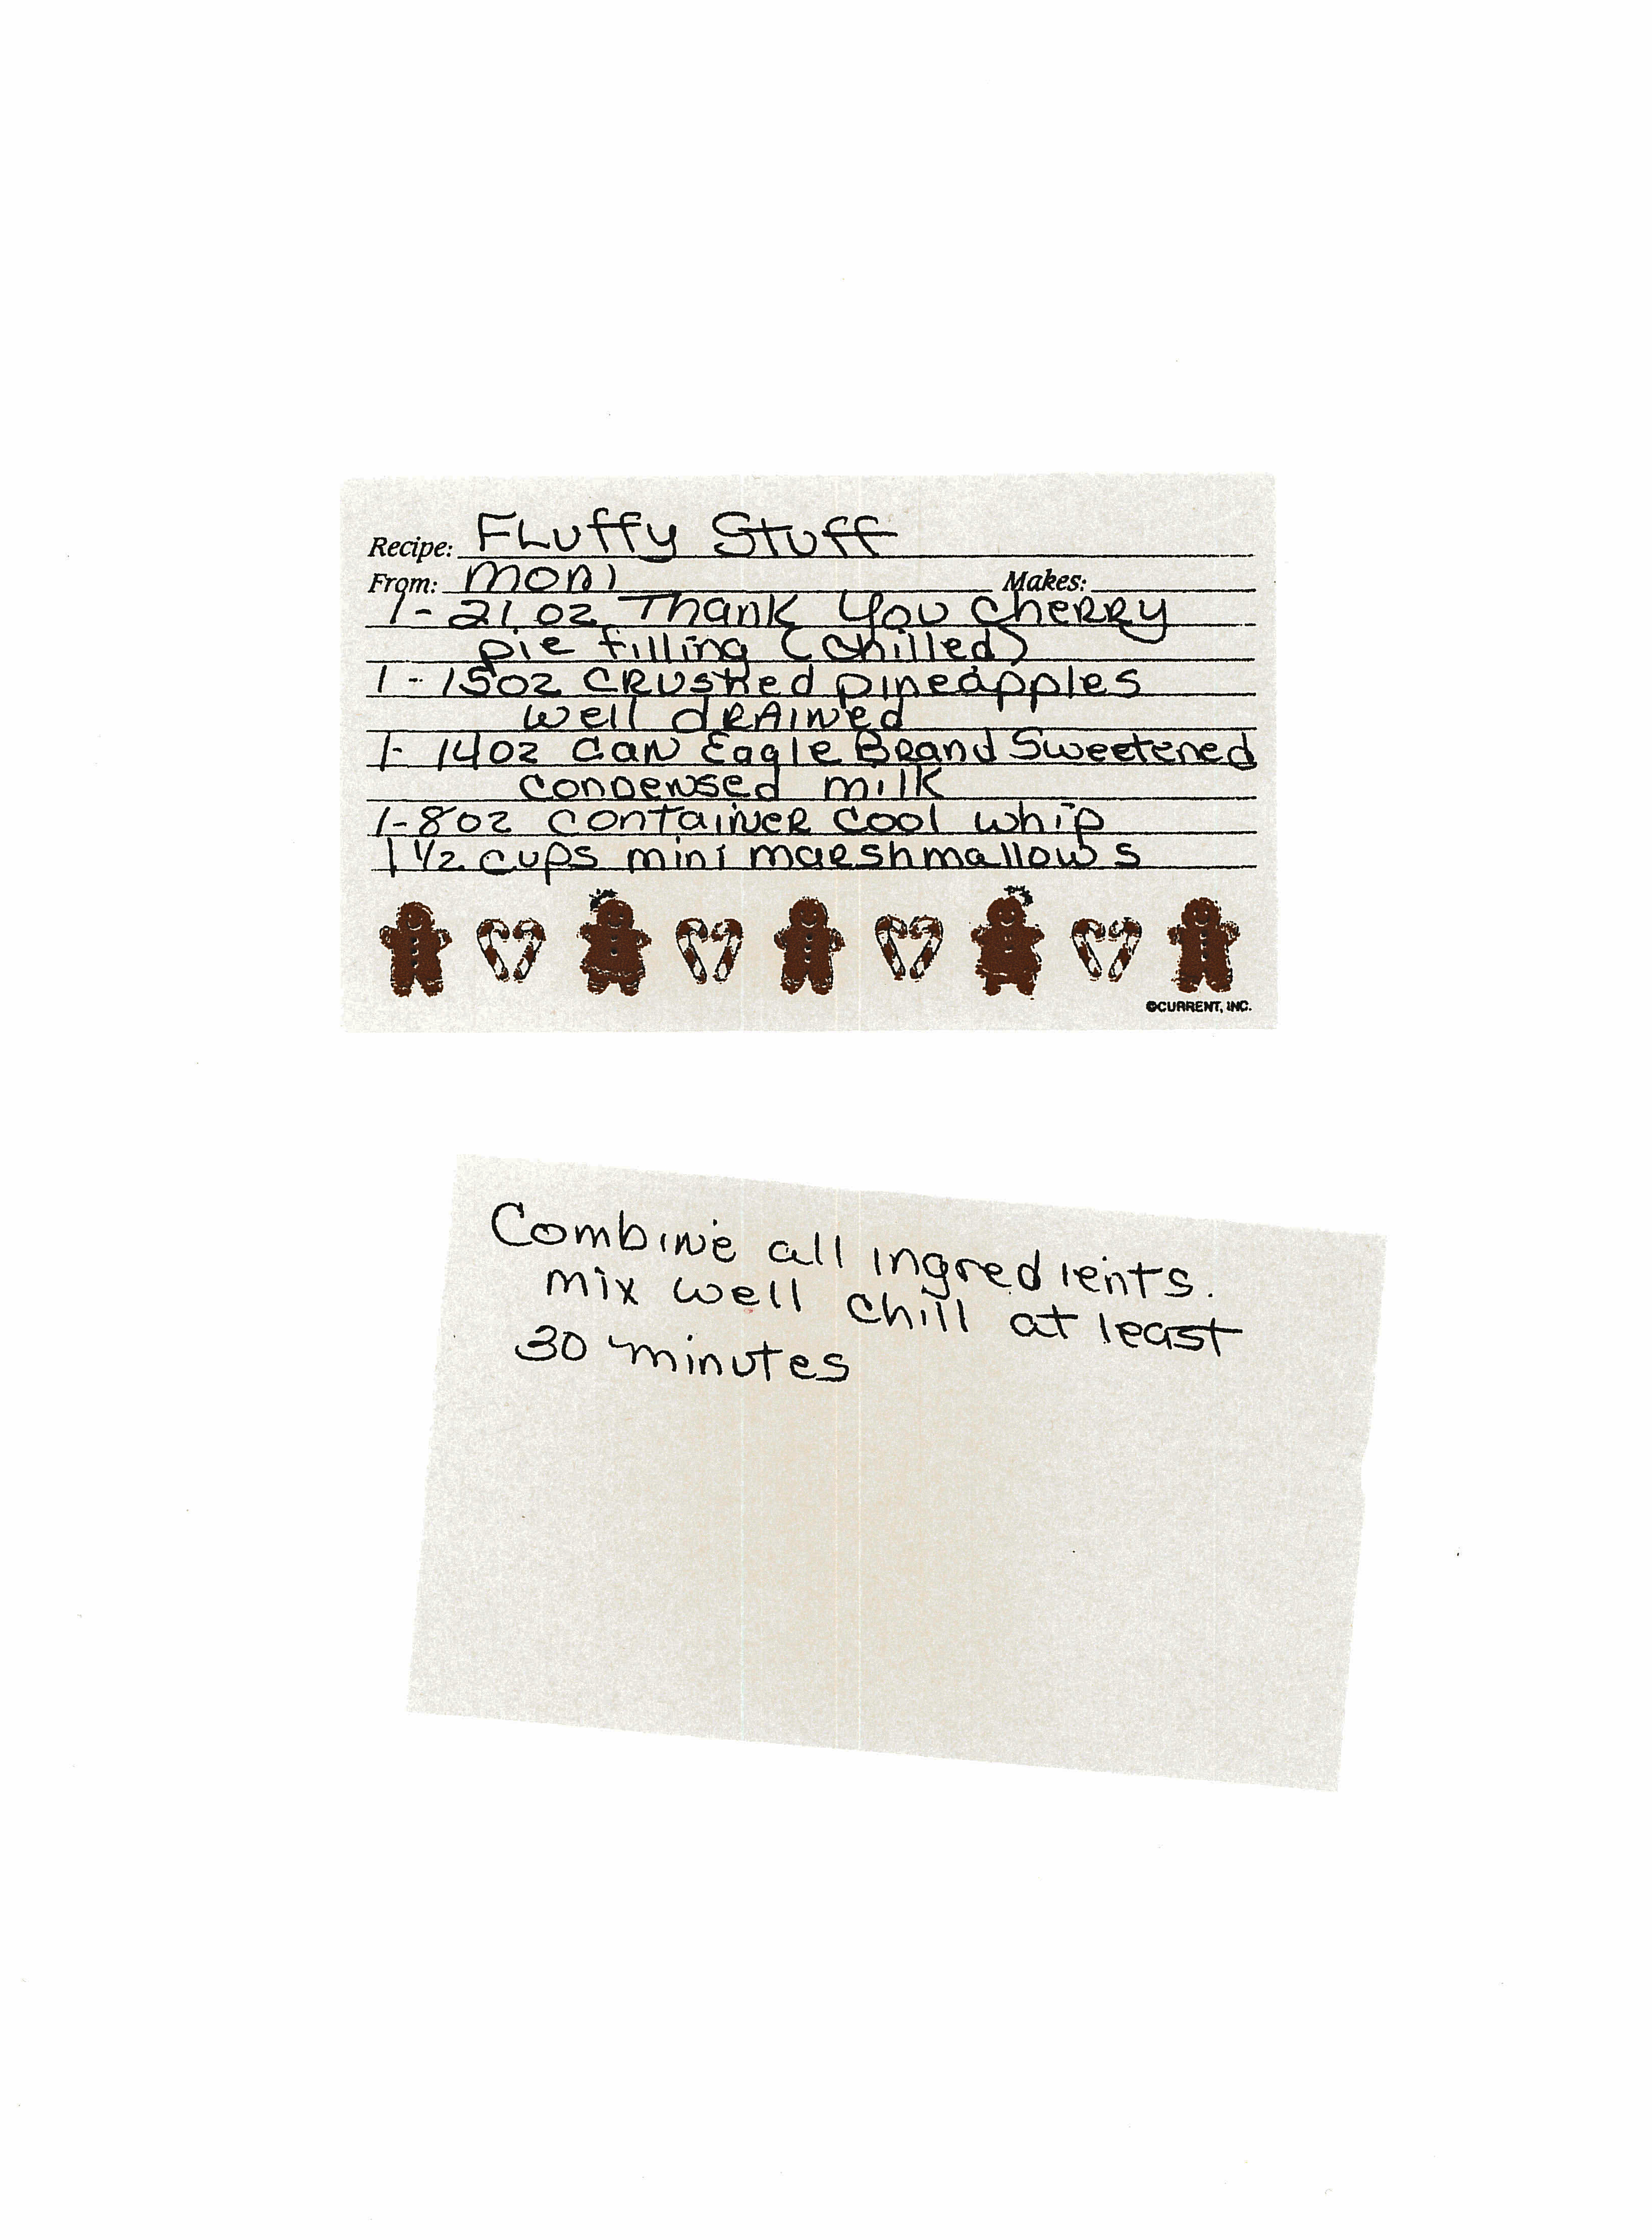 Recipe: Fluffy Stuff
From: Moni Makes:
1-21 oz Thank You Cherry
pie filling (chilled)
1-15oz crushed pineapples
well drained
1-14oz can Eagle Brand Sweetened
condensed milk
1-8oz container cool whip
1 1/2 cups mini marshmallows
©CURRENT, INC.
Combine all ingredients.
mix well chill at least
30 minutes